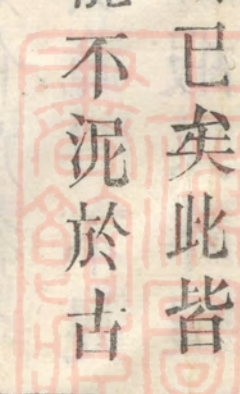 已矣此皆
能不泥於古